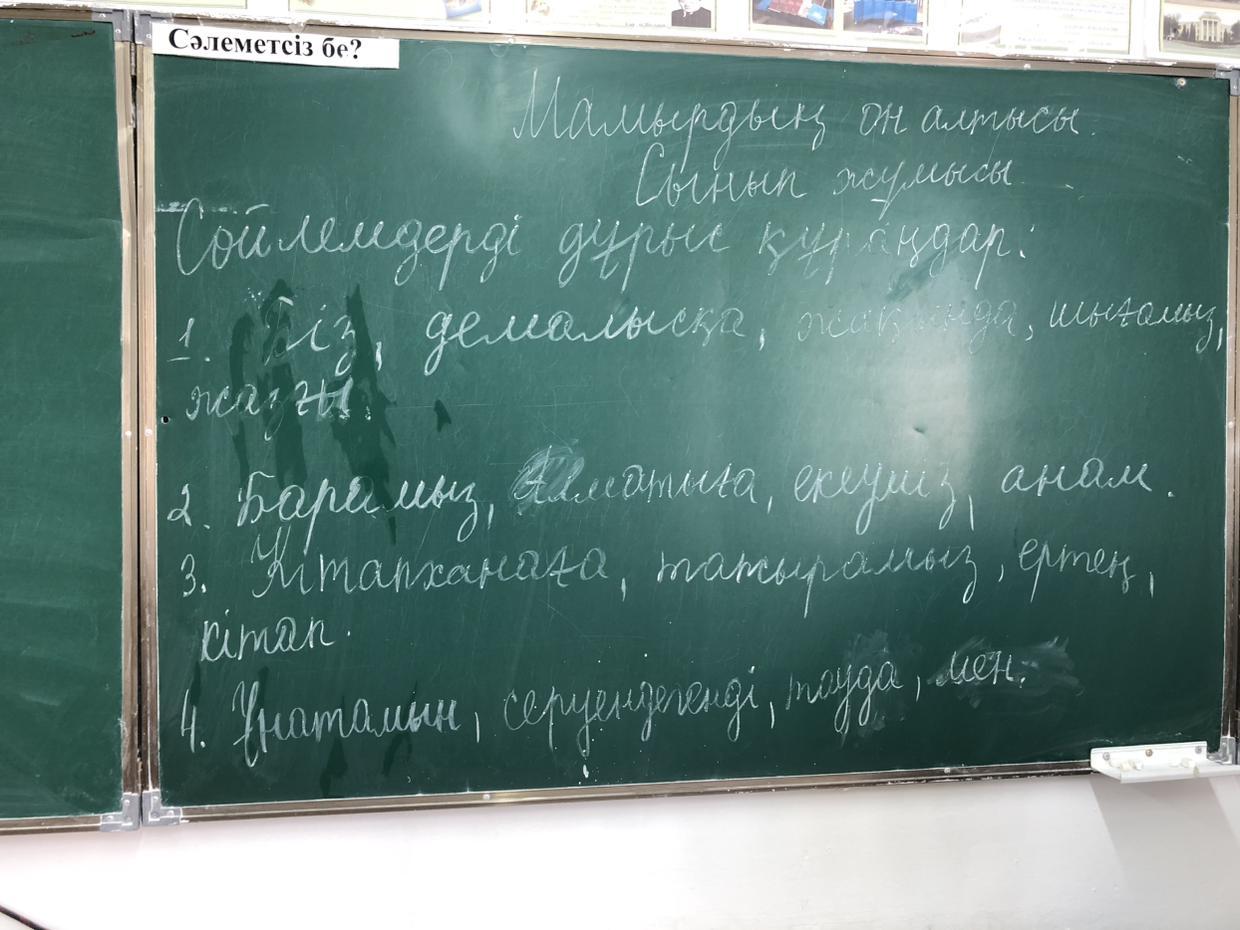 Сәлеметсіз бе?
Мамырдың он алтысы.
Сынып жұмысы
Сөйлемдерді дұрыс құраңдар:
1. Біз, демалысқа, жақында, шығамыз,
жазғы.
2. Барамыз, Алматыға, екеуміз, анам.
3. Кітапханаға, тапсырамыз, ертең,
кітап.
4. Ұнатамын, серуендегенді, тауда, мен.